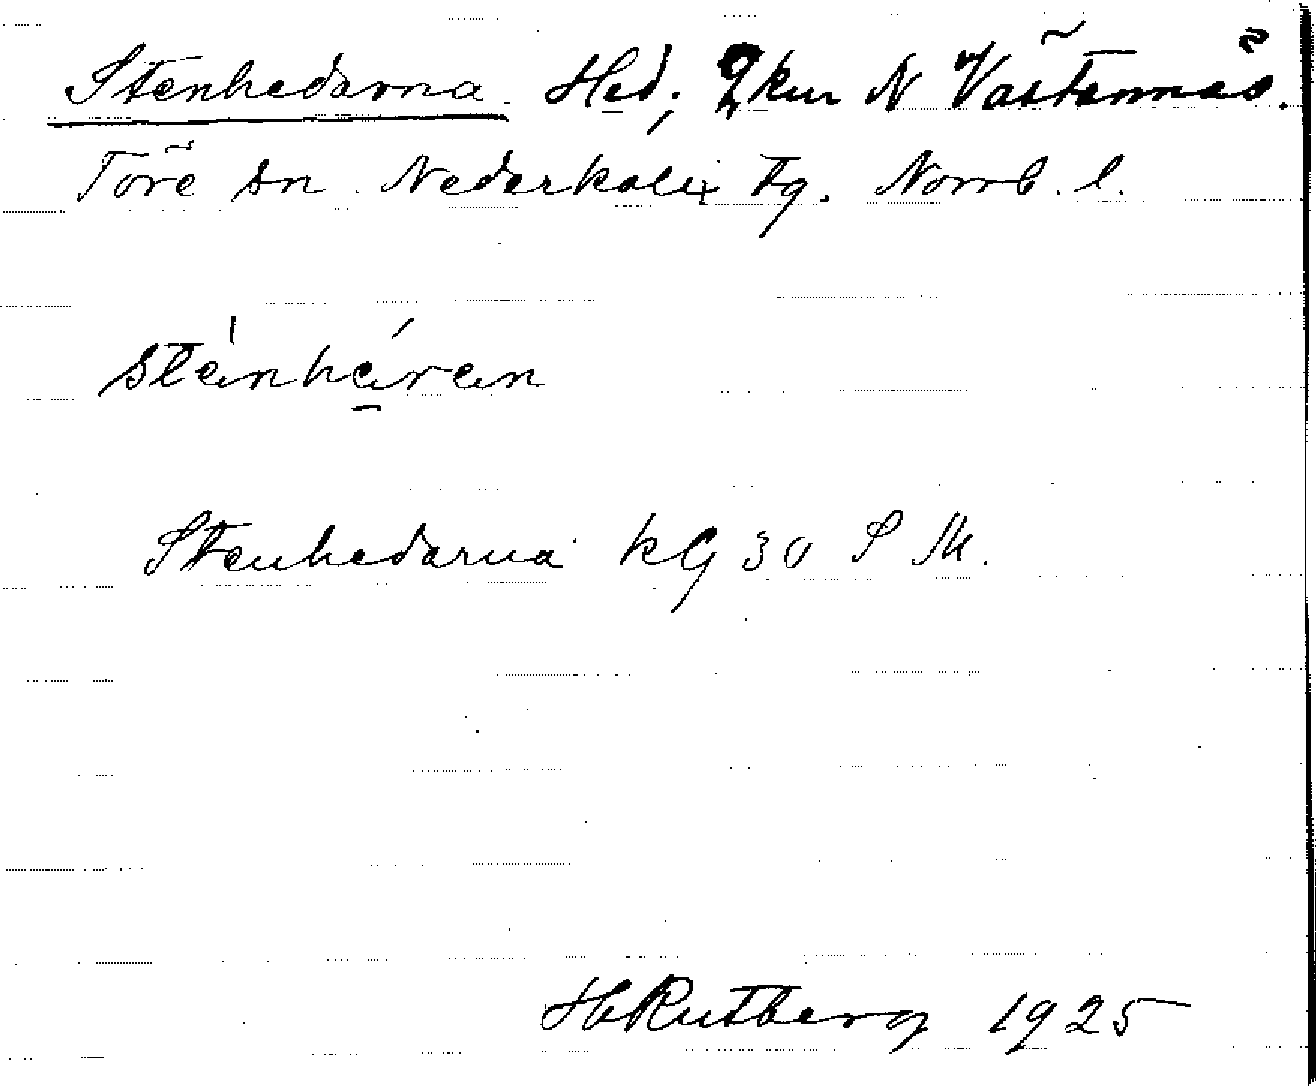 Stenhedarna. Hed; 2 km N Västannäs.
Töre sn. Nederkalix Tg. Norrb. l.
stèinhéren
Stenhedarna kG 30 S M.
H Rutberg 1925